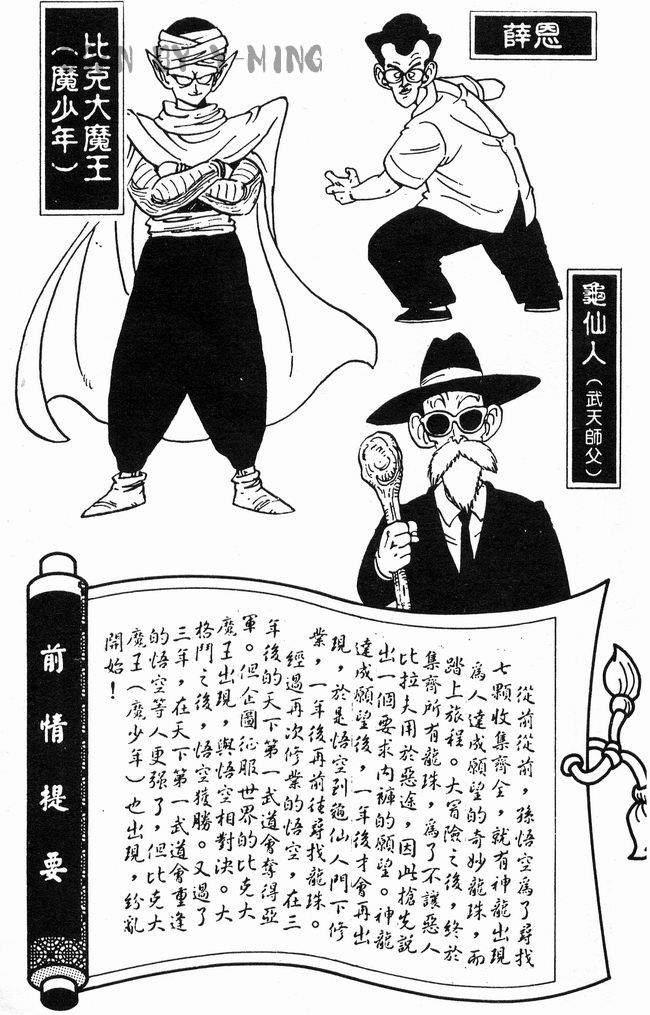 薛恩
比克大魔王
（魔少年）
BY Y-MING
龜仙人（武天師父）
從前從前，孫悟空爲了尋找
七顆收集齊全，就有神龍出現
爲人達成願望的奇妙龍珠，而
踏上旅程。大冒險之後，終於
集齊所有龍珠，爲了不讓惡人
比拉夫用於惡途，因此搶先說
出一個要求內褲的願望。神龍
達成願望後，一年後才會再出
現，於是悟空到龜仙人門下修
業，一年後再前往尋找龍珠。
經過再次修業的悟空，在三
年後的天下第一武道會奪得亞
軍。但企圖征服世界的比克大
魔王出現，與悟空相對決。大
格鬥之後，悟空獲勝。又過了
三年，在天下第一武道會重逢
的悟空等人更强了，但比克大
魔王（魔少年）也出現，紛亂
開始！
前情提要